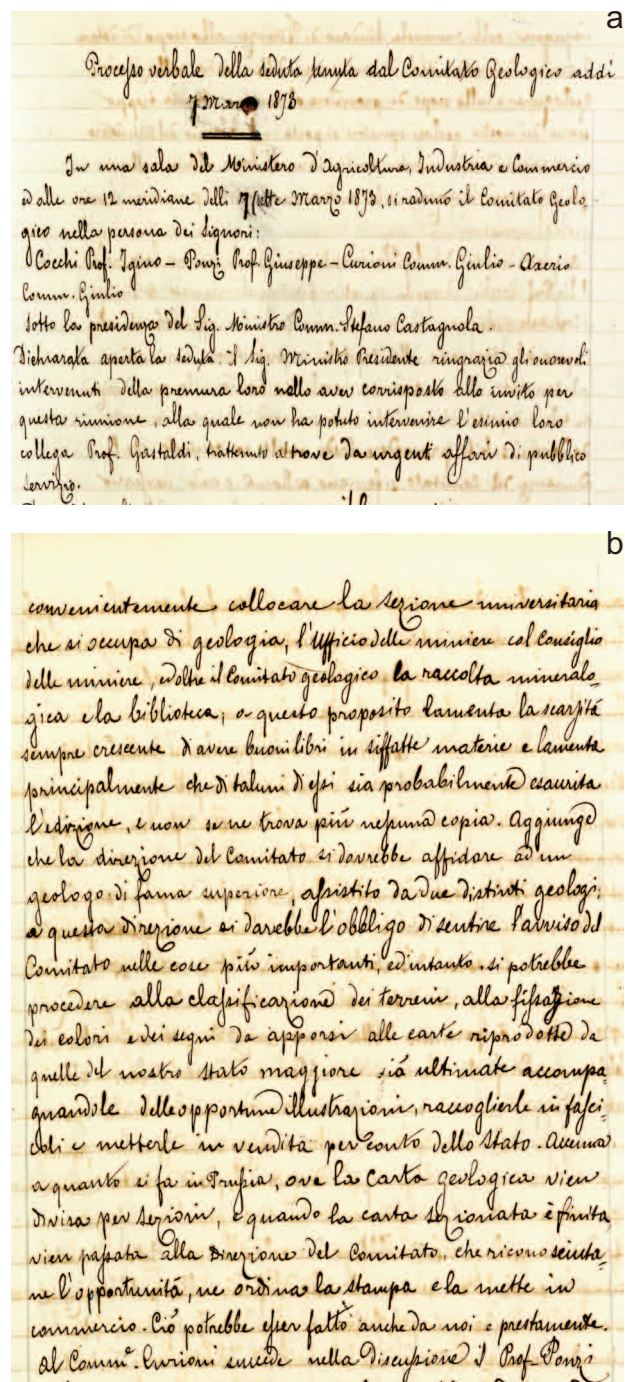 a
Processo verbale della seduta tenuta dal Comitato Geologico addì
7 Marzo 1873
In una sala del Ministero d'Agricoltura, Industria e Commercio
ed alle ore 12 meridiane delli 7 sette Marzo 1873, si radunò il Comitato Geolo-
gico nella persona dei Signori:
Cocchi Prof. Igino – Ponzi Prof. Giuseppe – Curioni Comm. Giulio – Axerio
Comm. Giulio
sotto la presidenza del Sig. Ministro Comm. Stefano Castagnola.
Dichiarata aperta la seduta il Sig. Ministro Presidente ringrazia gli onorevoli
intervenuti della premura loro nello aver corrisposto allo invito per
questa riunione, alla quale non ha potuto intervenire l'esimio loro
collega Prof. Gastaldi, trattenuto altrove da urgenti affari di pubblico
servizio.
b
convenientemente collocare la sezione universitaria
che si occupa di geologia, l'Ufficio delle miniere col Consiglio
delle miniere, ed oltre il Comitato geologico la raccolta mineralo-
gica e la biblioteca; a questo proposito lamenta la scarsità
sempre crescente di avere buoni libri in siffatte materie e lamenta
principalmente che di taluni di essi sia probabilmente esaurita
l'edizione, e non se ne trova più nessuna copia. Aggiunge
che la direzione del Comitato si dovrebbe affidare ad un
geologo di fama superiore, assistito da due distinti geologi;
a questa direzione si darebbe l'obbligo di sentire l'avviso del
Comitato nelle cose più importanti, ed intanto si potrebbe
procedere alla classificazione dei terreni, alla fissazione
dei colori e dei segni da apporsi alle carte riprodotte da
quelle del nostro Stato maggiore già ultimate accompa-
gnandole delle opportune illustrazioni, raccoglierle in fasci-
coli e metterle in vendita per conto dello Stato. Accenna
a quanto si fa in Prussia, ove la Carta geologica vien
divisa per sezioni, e quando la carta sezionata è finita
vien passata alla Direzione del Comitato, che riconosciuta-
ne l'opportunità, ne ordina la stampa e la mette in
commercio. Ciò potrebbe esser fatto anche da noi e prestamente.
Al Comm.e Curioni succede nella Discussione il Prof. Ponzi